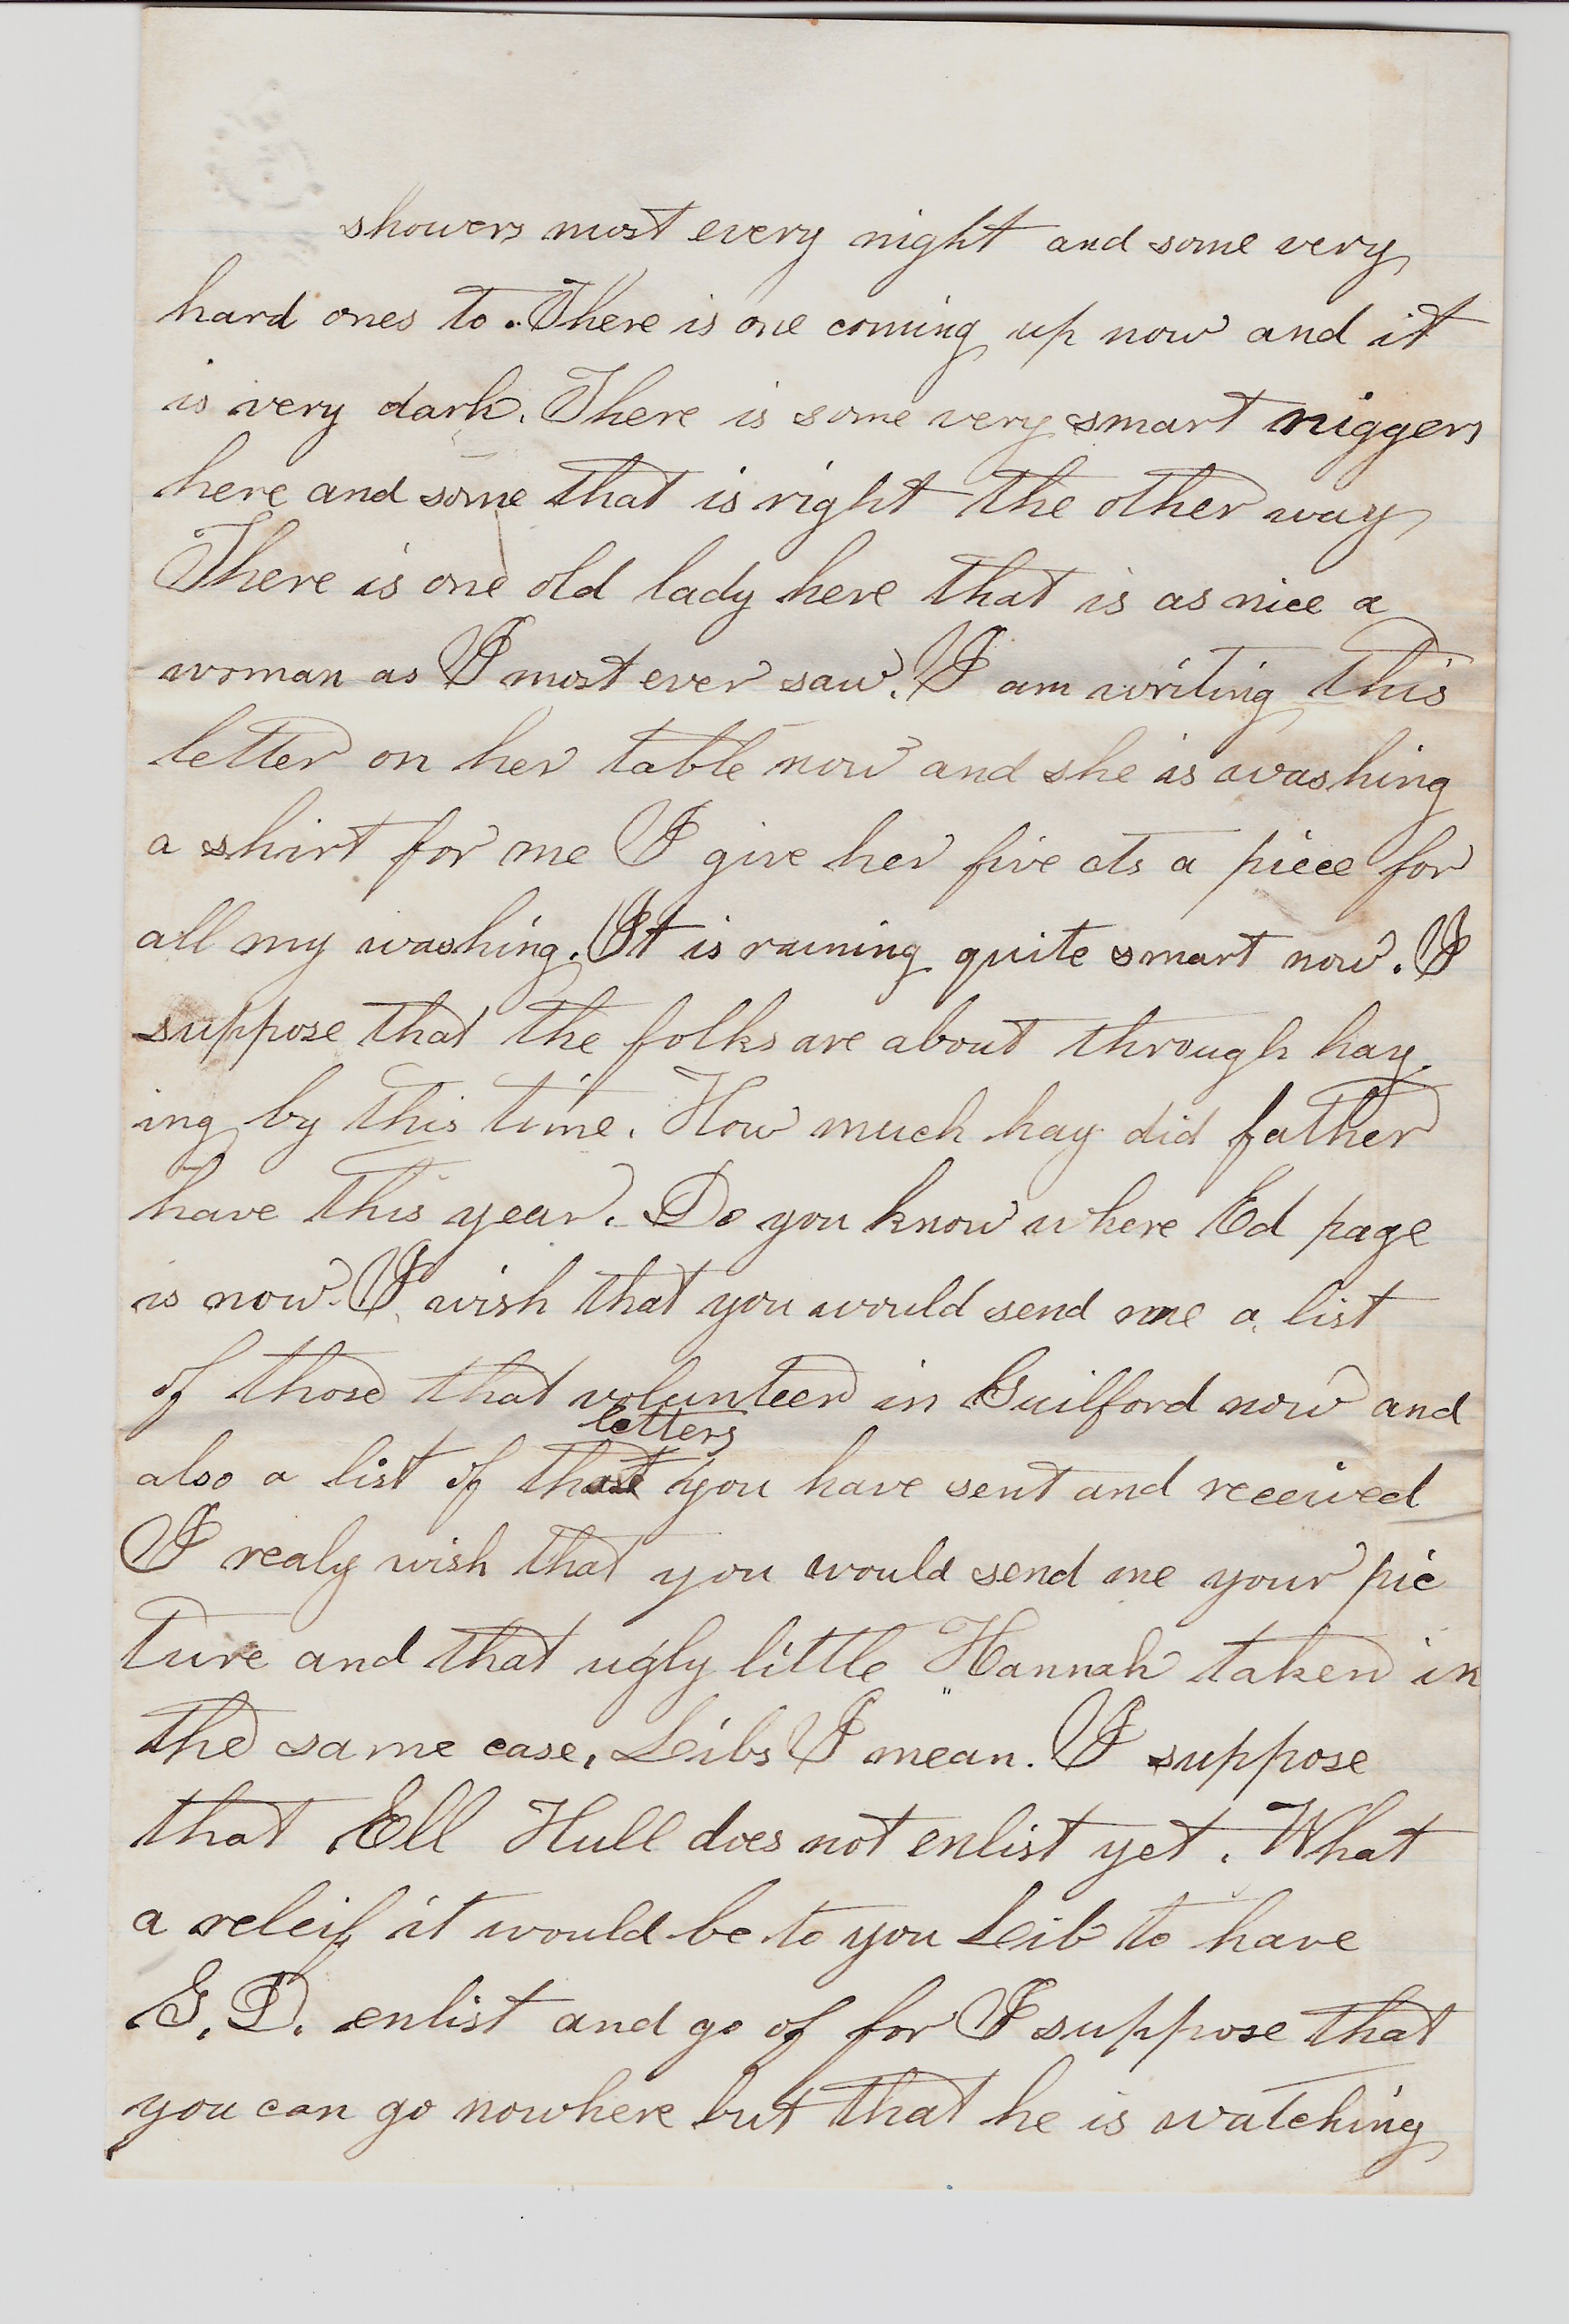 showers most every night and some very
hard ones to. There is one coming up now and it
is very dark. There is some very smart niggers
here and some that is right the other way
There is one old lady here that is as nice a
woman as I most ever saw. I am writing this
letter on her table now and she is washing
a shirt for me I give her five cts a piece for
all my washing. It is raining quite smart now. I
suppose that the folks are about through hay
ing by this time. How much hay did father
have this year. Do you know where Ed page
is now. I wish that you would send me a list
of those that volunteer in Guilford now and
letters
also a list of that you have sent and received
I realy wish that you would send me your pic
ture and that ugly little Hannah taken in
the same case, Leibs I mean. I suppose
that Ell Hull does not enlist yet. What
a releif it would be to you Leib to have
G. D. enlist and go of for I suppose that
you can go nowhere but that he is watching